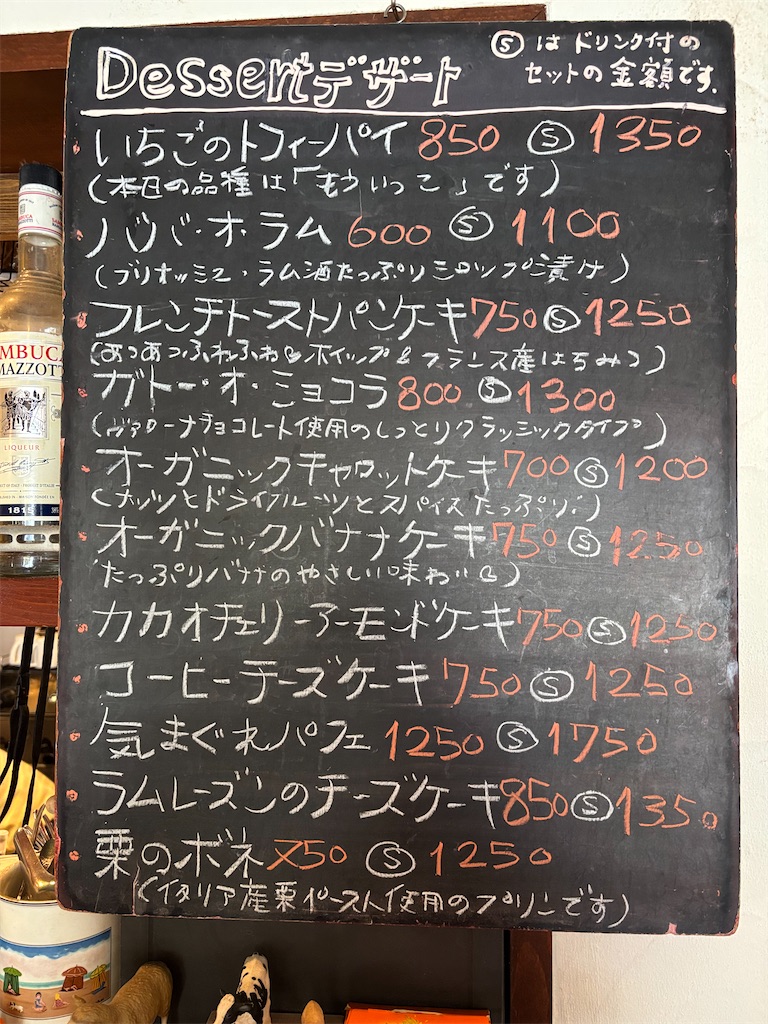 Dessertデザート
Ⓢはドリンク付の
セットの金額です.
いちごのトフィーパイ 850 Ⓢ 1350
(本日の品種は「もういっこ」です)
ババ・オ・ラム 600 Ⓢ 1100
(ブリオッシュ・ラム酒たっぷりシロップ漬け)
フレンチトーストパンケーキ 750 Ⓢ 1250
(あつあつふわふわ ホイップ&フランス産はちみつ)
ガトー・オ・ショコラ 800 Ⓢ 1300
(ヴァローナチョコレート使用のしっとりクラッシックタイプ)
オーガニックキャロットケーキ 700 Ⓢ 1200
(ナッツとドライフルーツとスパイスたっぷり!)
オーガニックバナナケーキ 750 Ⓢ 1250
(たっぷりバナナのやさしい味わい)
カカオチェリーアーモンドケーキ 750 Ⓢ 1250
コーヒーチーズケーキ 750 Ⓢ 1250
気まぐれパフェ 1250 Ⓢ 1750
ラムレーズンのチーズケーキ 850 Ⓢ 1350
栗のボネ 750 Ⓢ 1250
(イタリア産栗ペースト使用のプリンです)
MBUCA
MAZZOTT
LIQUEUR
1815